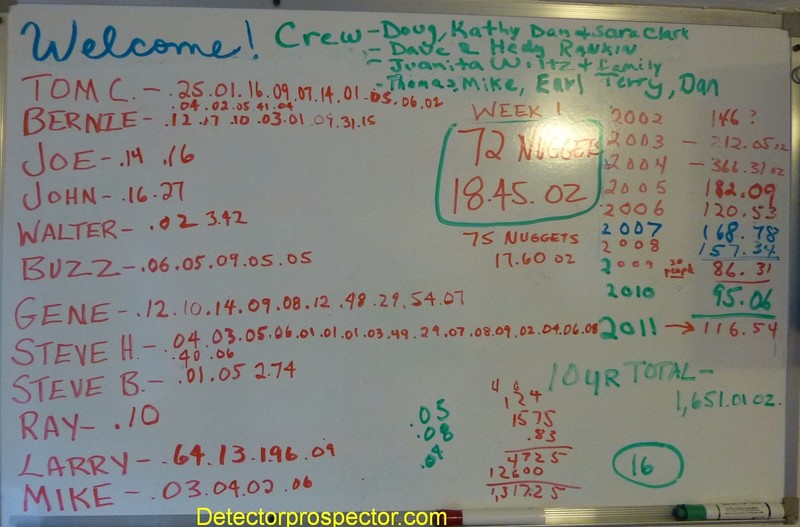 Welcome! Crew - Doug, Kathy Dan & Sara Clark
- Dave & Hedy Rankin
- Juanita Wiltz & family
- Thomas, Mike, Earl Terry, Dan
TOM C. - .25 .01 .16 .09 .07 .14 .01 .05 .06 .02
.04 .02 .05 .41 .04
BERNIE - .12 .17 .10 .03 .01 .09 .31 .15
JOE - .14 .16
JOHN - .16 .27
WALTER - .02 3.42
BUZZ - .06 .05 .09 .05 .05
GENE - .12 .10 .14 .09 .08 .12 .48 .29 .54 .07
STEVE H. - .04 .03 .05 .06 .01 .01 .01 .03 .49 .29 .07 .08 .09 .02 .04 .06 .08
.40 .06
STEVE B. - .01 .05 2.74
RAY - .10
LARRY - .64 .13 .196 .09
MIKE - .03 .04 .02 .06
WEEK 1
72 NUGGETS
18.45 OZ
75 NUGGETS
17.60 OZ
2002 146 ?
2003 - 212.05 oz
2004 - 366.31 oz
2005 182.09
2006 120.53
2007 168.78
2008 157.34
2009 20 people 86.31
2010 95.06
2011 → 116.54
10 YR TOTAL -
1,651.01 OZ.
.05
.08
4 6
124
1575
.83
4725
12600
1,317.25
16
Detectorprospector.com